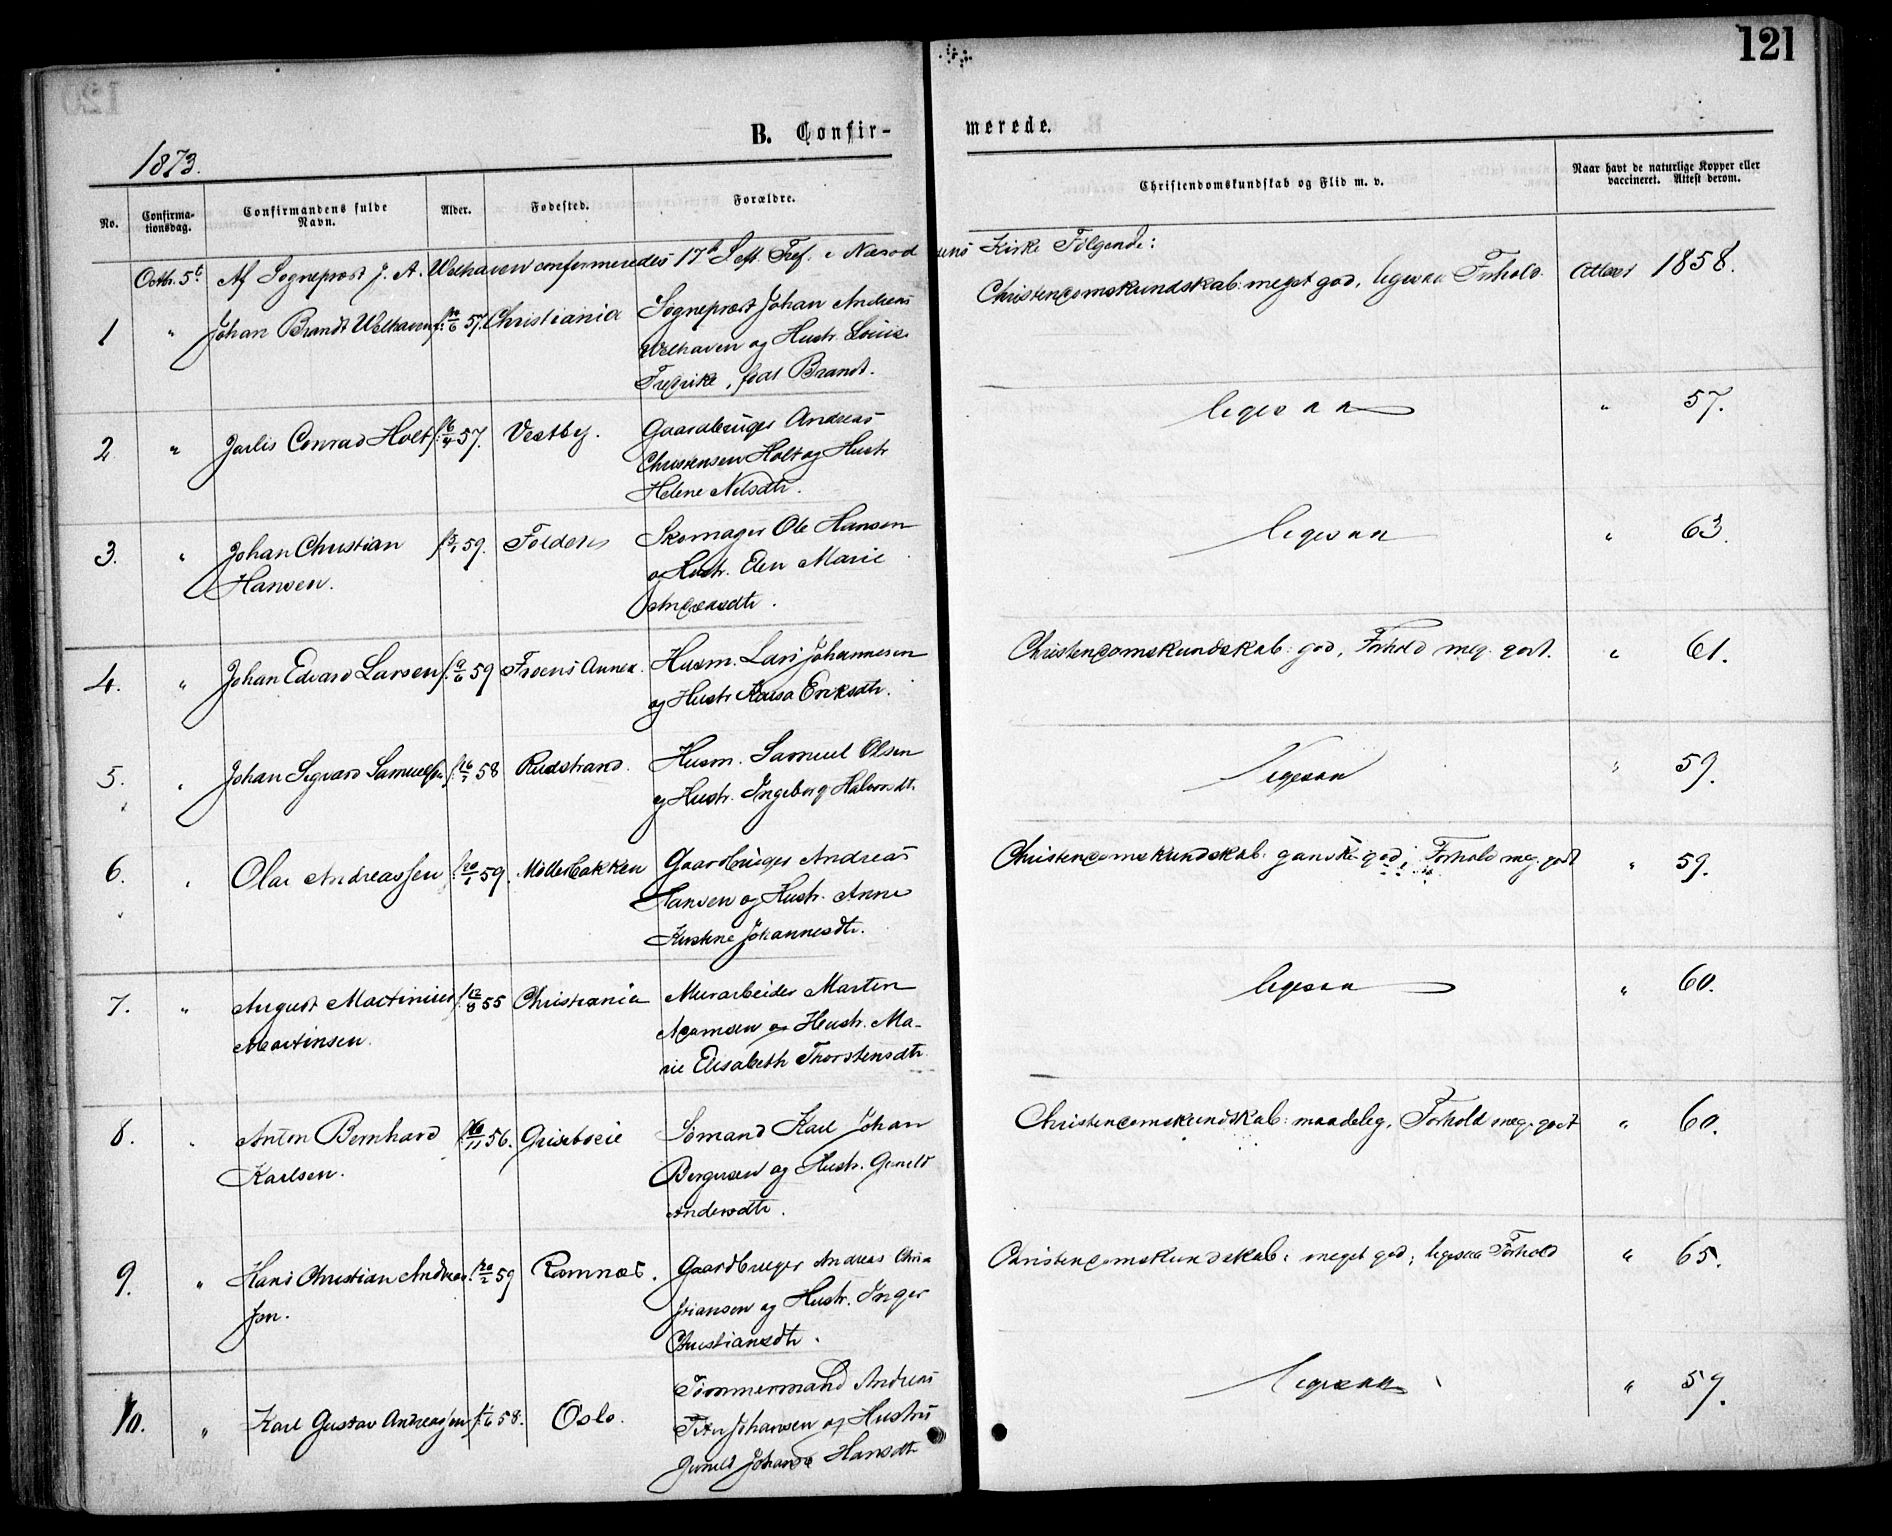 121
B. Confir-
merede.
1873.
No.
Confirma-
tionsdag.
Confirmandens fulde
Navn.
Alder.
Fødested.
Forældre.
Christendomskundskab og Flid m. v.
Naar havt de naturlige Kopper eller
vaccineret. Attest derom.
Octbr. 5te Af Sogneprest J. A. Welhaven confirmeredes 17de S. eft. Tref. i Næsoddens Kirke Følgende:
1 " Johan Brandt Welhaven f. 57. Christiania Sogneprest Johan Andreas Christendomskundskab: meget god, ligesaa Forhold. Attest 1858.
Welhaven og Hustr. Louise
Fredrike, født Brandt.
2 " Jarlis Conrad Holt f. 57. Vestby. Gaardbruger Andreas ligesaa " 57.
Christensen Holt og Hustr
Helene Nilsdtr.
3. " Johan Christian f. 59. Folders Skomager Ole Hansen ligesaa " 63.
Hansen. og Hustr. Elen Marie
Andreasdtr.
4. " Johan Edvard Larsen f. 59 Froens Annex. Husm. Lars Johannesen Christendomskundskab: god, Forhold meg. godt. " 61.
og Hustr Kaisa Eriksdtr.
5. " Johan Sigvard Samuelsen f. 58 Rudstrand. Husm. Samuel Olsen ligesaa " 59.
og Hustr. Ingeborg Halvorsdtr.
6. " Olai Andreassen f. 59. Møllerbakken Gaardbruger Andreas Christendomskundskab: ganske god; Forhold meg. godt " 59.
Hansen og Hustr. Anne
Kirstine Johannesdtr.
7. " August Martinius f. 12/8 55 Christiania Murarbeider Marten ligesaa " 60.
Martinsen. Adamsen og Hustr. Ma-
rie Elisabeth Thorstensdtr.
8. " Anton Bernhard f. 56. Griseboeie Sømand Karl Johan Christendomskundskab: maadelig, Forhold meg. godt " 60.
Karlsen. Bergersen og Hustr. Gunild
Andersdtr.
9. " Hans Christian Andreas f. 20/2 59 Ramnæs. Gaardbruger Andreas Chri- Christendomskundskab: meget god; ligesaa Forhold " 65.
sen. stiansen og Hustr. Inger
Christiansdtr.
10. " Karl Gustav Andreassen f. 58. Oslo. Tømmermand Andreas ligesaa " 59.
Johansen og Hustru
Gunild Johanne Hansdtr